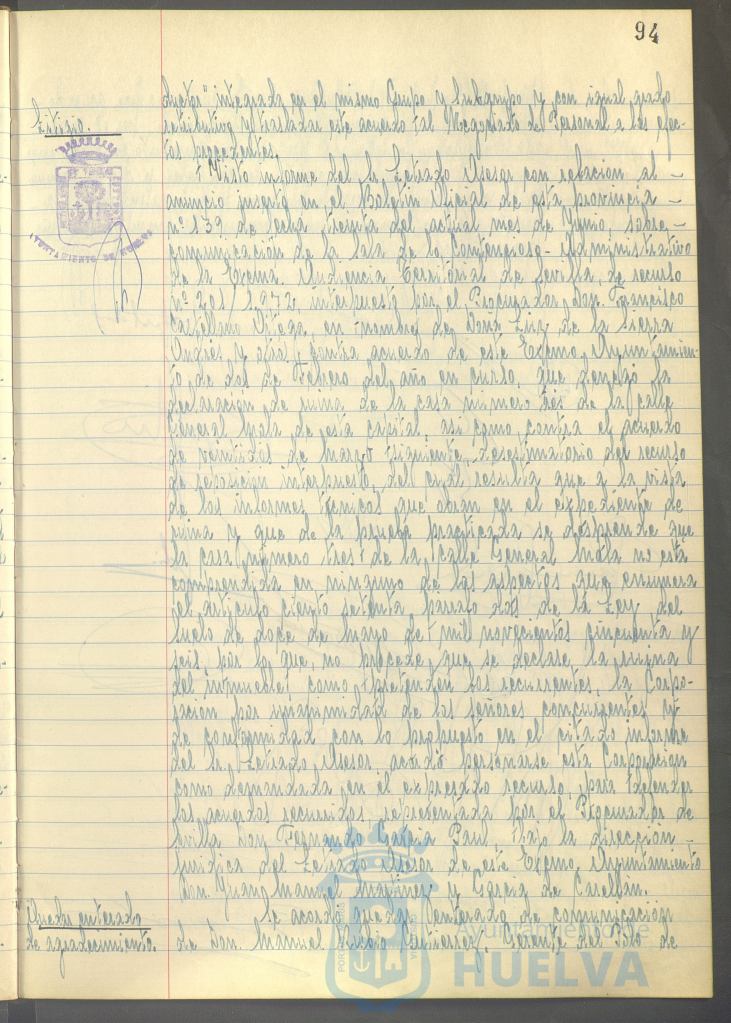 94
ductor" integrada en el mismo Grupo y Subgrupo y con igual grado
Litigio.
retributivo y trasladar este acuerdo al Negociado de Personal a los efec-
tos procedentes.
Visto informe del Sr. Letrado Asesor con relación al
anuncio inserto en el Boletín Oficial de esta provincia
nº 139 de fecha treinta del actual mes de Junio, sobre
comunicación de la Sala de lo Contencioso-Administrativo
AYUNTAMIENTO DE HUELVA
de la Excma. Audiencia Territorial de Sevilla, de recurso
nº 201/1.972, interpuesto por el Procurador Don Francisco
Castellano Ortega, en nombre de Doña Luz de la Sierra
Andres y otra, contra acuerdo de este Excmo. Ayuntamien-
to de dos de Febrero del año en curso, que denegó la
declaración de ruina de la casa número tres de la calle
General Mola de esta capital, así como contra el acuerdo
de veintidos de marzo siguiente, desestimatorio del recurso
de reposición interpuesto, del cual resulta que a la vista
de los informes técnicos que obran en el expediente de
ruina y que de la prueba practicada se desprende que
la casa número tres de la calle General Mola no está
comprendida en ninguno de los aspectos que enumera
el artículo ciento setenta, párrafo dos de la Ley del
Suelo de doce de mayo de mil novecientos cincuenta y
seis, por lo que, no procede que se declare la ruina
del inmueble, como pretenden los recurrentes, la Corpo-
ración por unanimidad de los señores concurrentes y
de conformidad con lo propuesto en el citado informe
del Sr. Letrado Asesor acordó personarse esta Corporación
como demandada en el expresado recurso, para defender
los acuerdos recurridos, representada por el Procurador de
Sevilla Don Fernando García Paul bajo la dirección
jurídica del Letrado Asesor de este Excmo. Ayuntamiento
Don Juan Manuel Martinez y García de
Quedar enterado
Se acordó quedar enterado de comunicación
de agradecimiento.
de Don Manuel Rubio Gutierrez, Gerente del Polo de
Ayuntamiento de
HUELVA